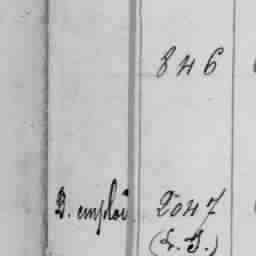 846
D. emploi 2047
(L. G.)